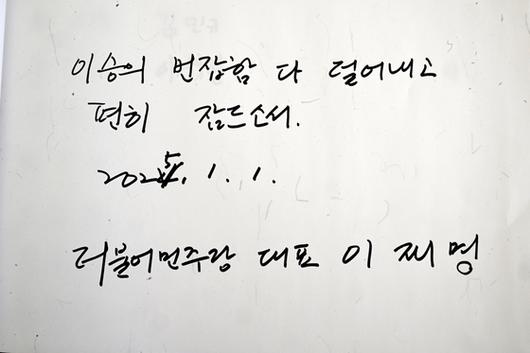 이승의 번잡함 다 덜어내고
편히 잠드소서.
2025. 1. 1.
더불어민주당 대표 이재명